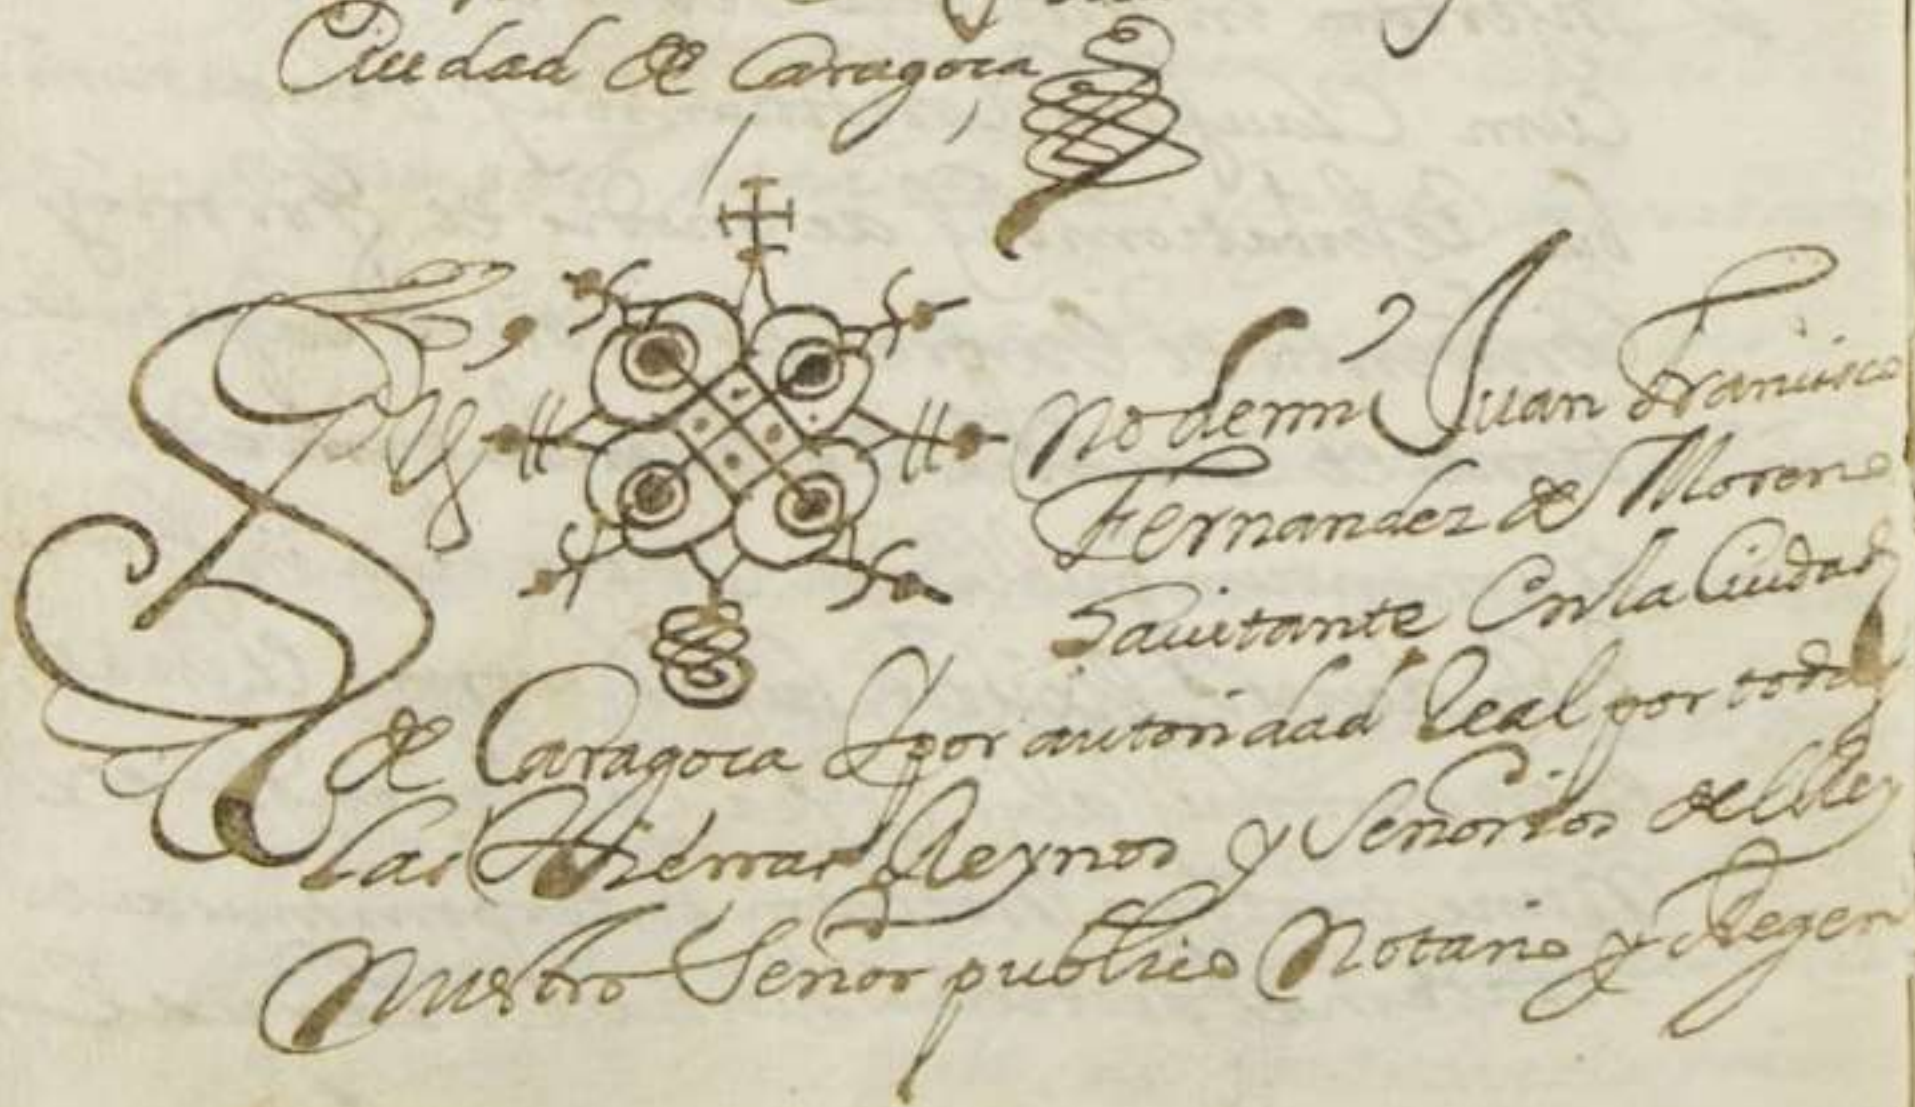 Ciudad de Caragoça
Sig no de mi Juan Francisco
Fernandez de Moreno
hauitante En la Ciudad
de Caragoça y por autoridad Real por todas
las tierras Reynos y Señorios del Rey
nuestro Señor publico Notario y Regen